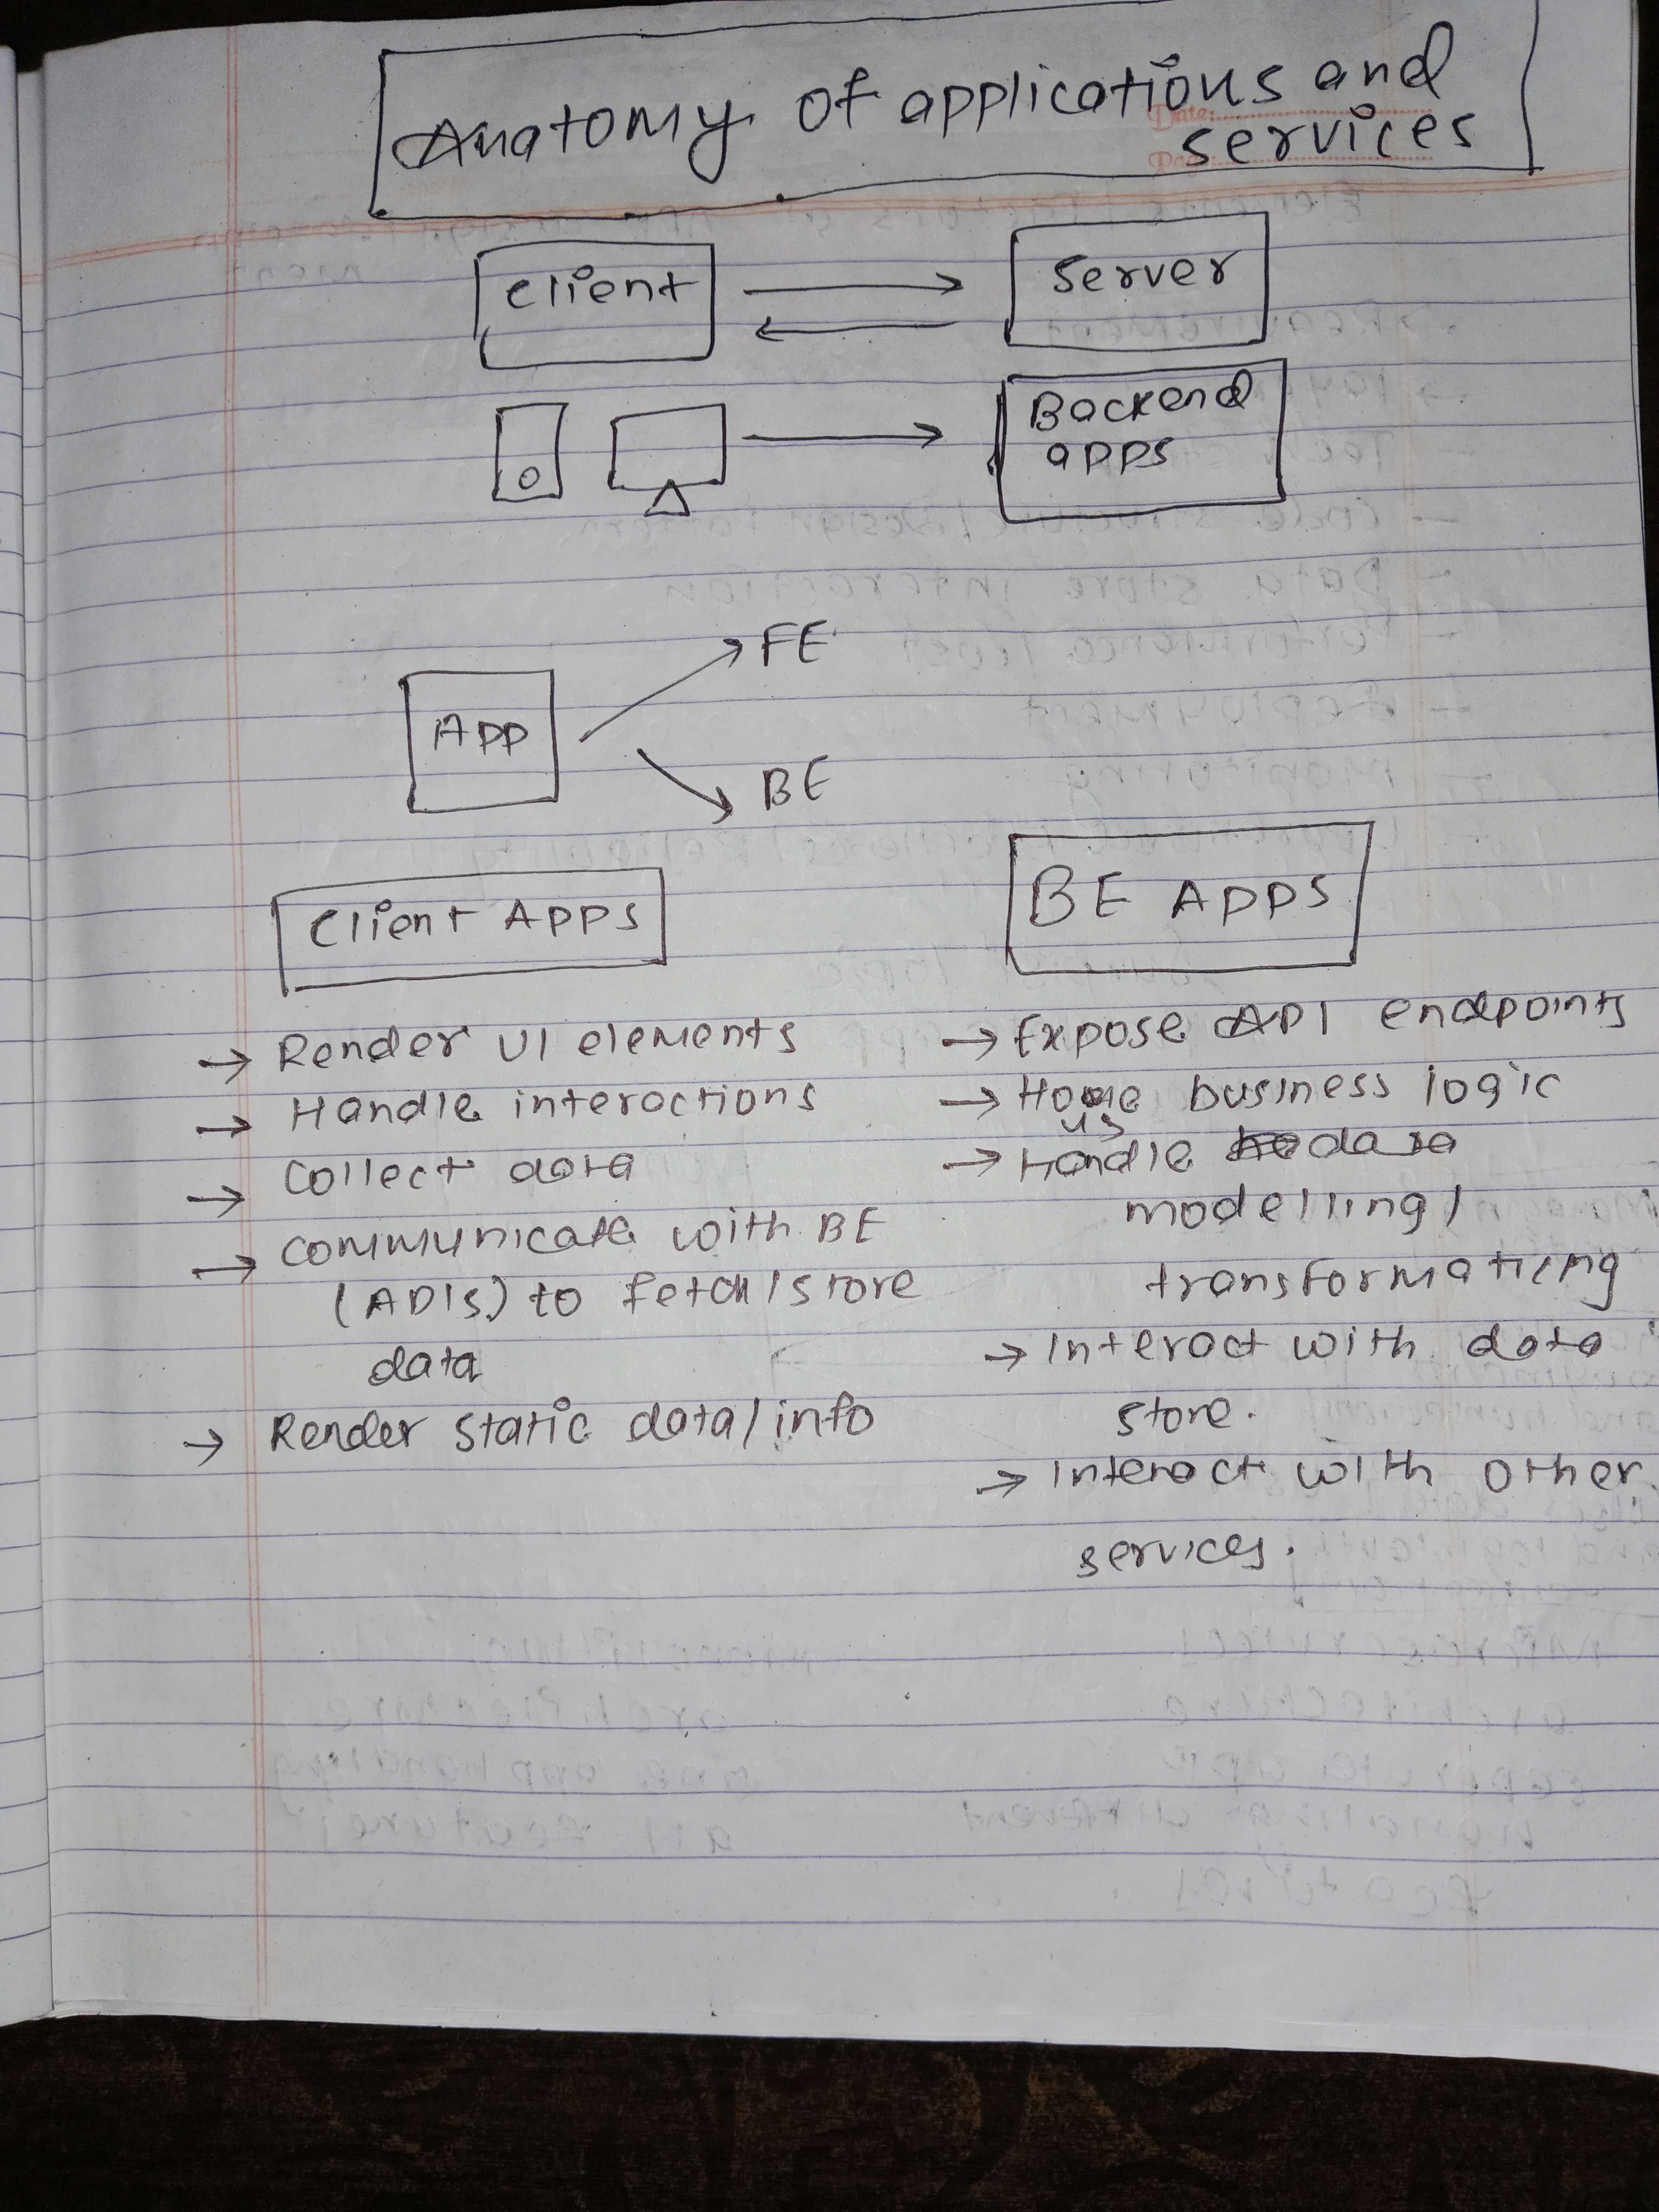 Anatomy of applications and
services
Client
Server
Backend
apps
APP
FE
BE
Client APPS
→ Render UI elements
→ Handle interactions
→ Collect data
→ Communicate with BE
(APIs) to fetch/store
data
→ Render static data/info
BE APPS
→ Expose API endpoints
→ House business logic
→ Handle data
modelling/
transformaticing
→ Interact with data
store.
→ Interact with other
services.